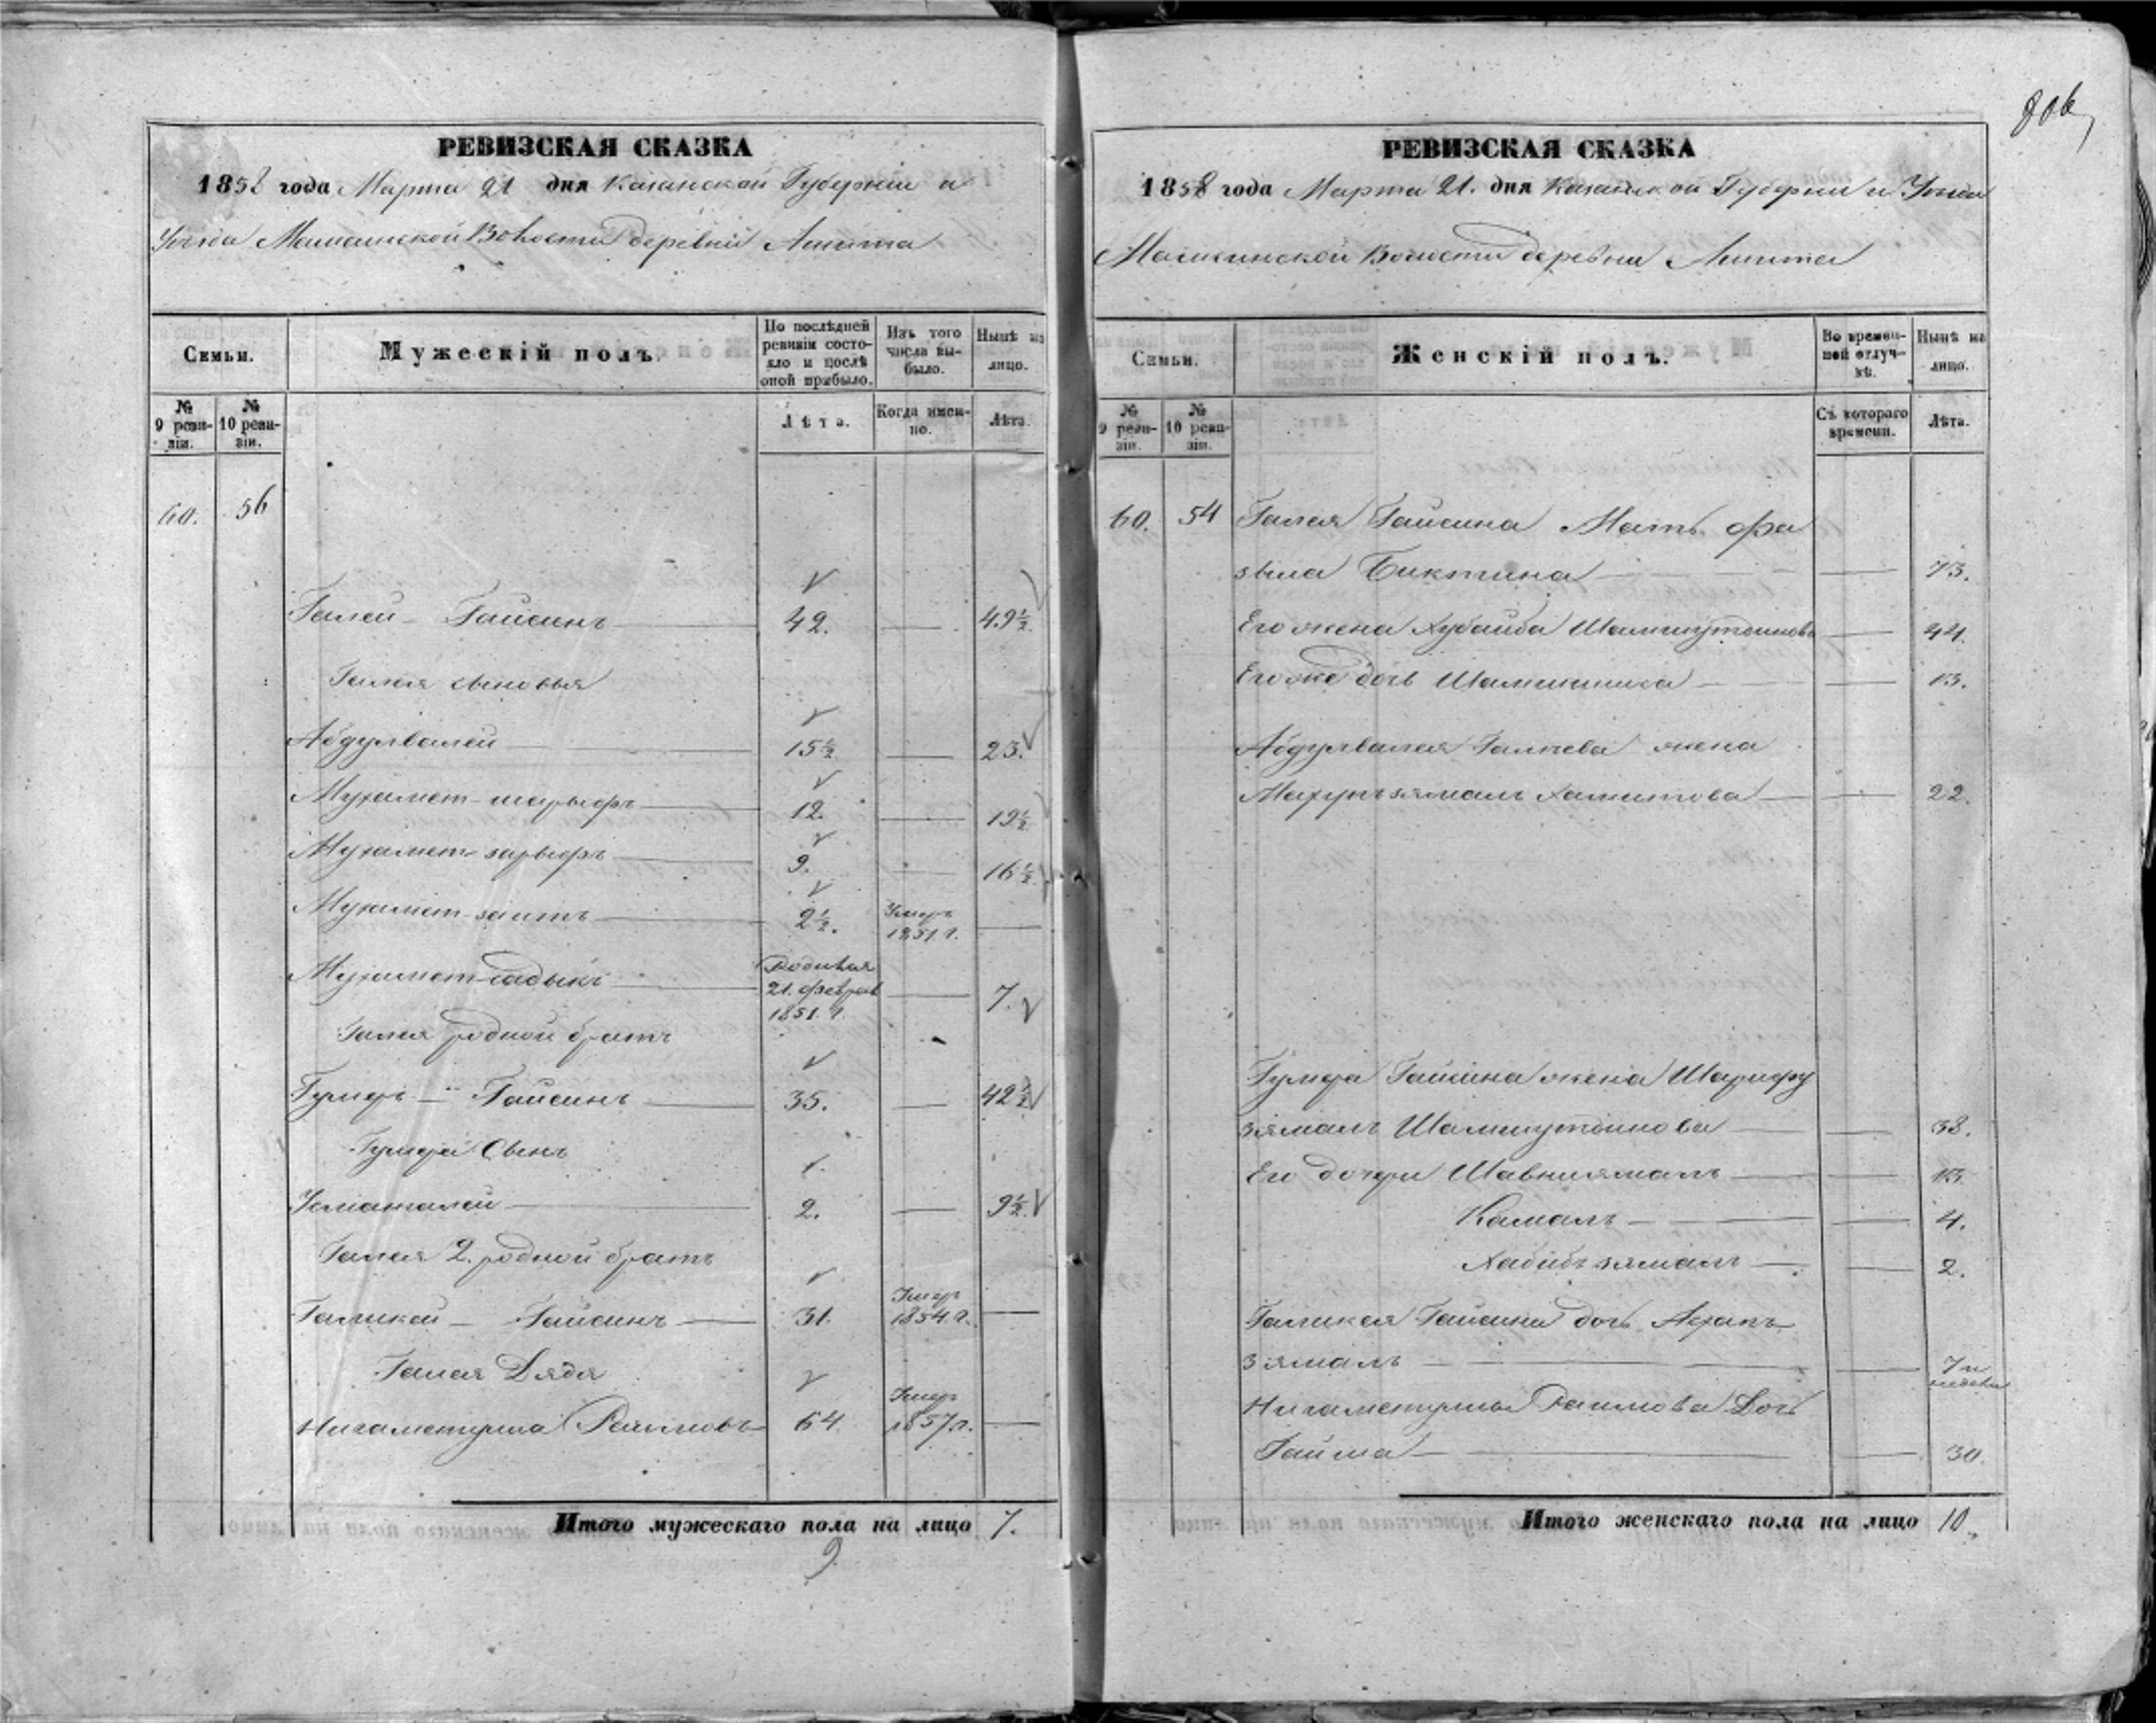 806
РЕВИЗСКАЯ СКАЗКА
1858 года Марта 21 дня Казанской Губернии и
Уезда Мамсинской Волости деревни Ашита
Семьи.
Мужескій полъ.
По послѣдней ревизіи состояло и послѣ оной прибыло.
Изъ того числа выбыло.
Нынѣ на лицо.
№ 9 ревизіи.
№ 10 ревизіи.
Лѣта.
Когда именно.
Лѣта.
60. 56
Галей Гайсинъ 42. 49½.
Галея сыновья
Абдулвалей 15½ 23.
Мухамет-шарыфъ 12. 19½
Мухамет-зарыфъ 9. 16½.
Мухамет-заитъ 2½. Умеръ 1851.г.
Мухамет-садыкъ Родился 21. феврал 1851.г. 7.
Галея родной братъ
Гумеръ Гайсинъ 35. 42½
Гумера Сынъ
Усманалей 2. 9½.
Галея 2. родной братъ
Галикей Гайсинъ 31. Умеръ 1854.г.
Галея Дядя
Нигаметулла Рахимовъ 64. Умеръ 1857.г.
Итого мужескаго пола на лицо 7.
9
РЕВИЗСКАЯ СКАЗКА
1858 года Марта 21. дня Казанской Губернии и Уезда
Волости деревни Ашита
Семьи.
Женскій полъ.
Во временной отлучкѣ.
Нынѣ на лицо.
№ 9 ревизіи.
№ 10 ревизіи.
Съ котораго времени.
Лѣта.
60. 54 Галея Гайсина Мать Фа
зыла Биктина 73.
Его жена Хубайба Шамшутдинова 44.
Его же дочь 13.
Абдулвалея Галеева жена
Махупъзямалъ Хамитова 22.
Гумера Гайсина жена Шарифу
зямалъ Шамшутдинова 38.
Его дочери 13.
Камалъ 4.
Хабибъзямалъ 2.
Галикея Гайсина дочь
зямалъ 7 и
Нигаметуллы Рахимова Дочь
Гайша 30.
Итого женскаго пола на лицо 10.